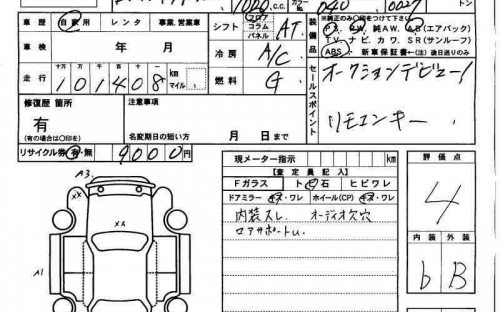 1000 c.c. カラー No. 040 0027 トン
車歴 自家用 レンタ 事業、営業車 シフト フロア コラム パネル AT
装備品 ※純正のみ○印をつけて下さい
P.S. P.W. 純AW. A.B(エアバック)
TV. ナビ. カワ. SR(サンルーフ)
ABS 新車保証書←(注)後日送りのみ
車検 年 月 冷房 A/C
走行 101408 km マイル 燃料 G
セールスポイント オークションデビュー!
リモコンキー
修復歴 箇所 有 (有の場合は○印を)
注意事項
名変期日の短い方 月 日まで
リサイクル券 有・無 9000円
現メーター指示 km
【査定員記入】
Fガラス トビ石 ヒビワレ
ドアミラー キズ・ワレ ホイール(CP) キズ・ワレ
内装スレ オーディオ欠穴
コアサポートu.
評価点 4
内装 外装
b B
A3
xx
xx
A1